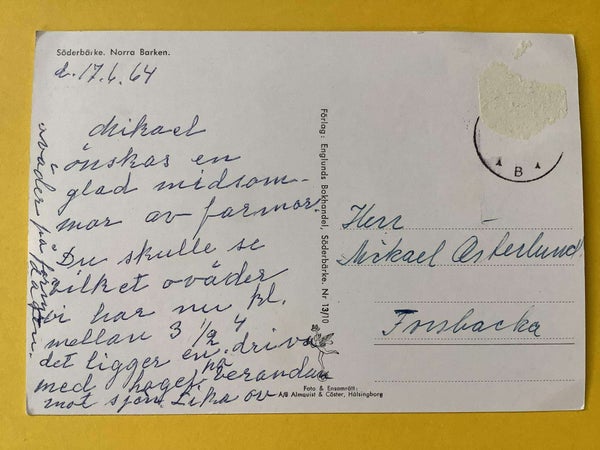 Söderbärke. Norra Barken.
d. 17.6.64
Mikael
önskas en
glad midsom-
mar av farmor,
Du skulle se
vilket oväder
vi har nu kl.
mellan 3 1/2 4
det ligger en driva
med hagel på verandan
mot sjön. Lika ov
oväder på
Förlag: Englunds Bokhandel, Söderbärke. Nr 13/10
B
Herr
Mickael Österlund.
Forsbacka
Foto & Ensamrätt:
A/B Almquist & Cöster, Hälsingborg